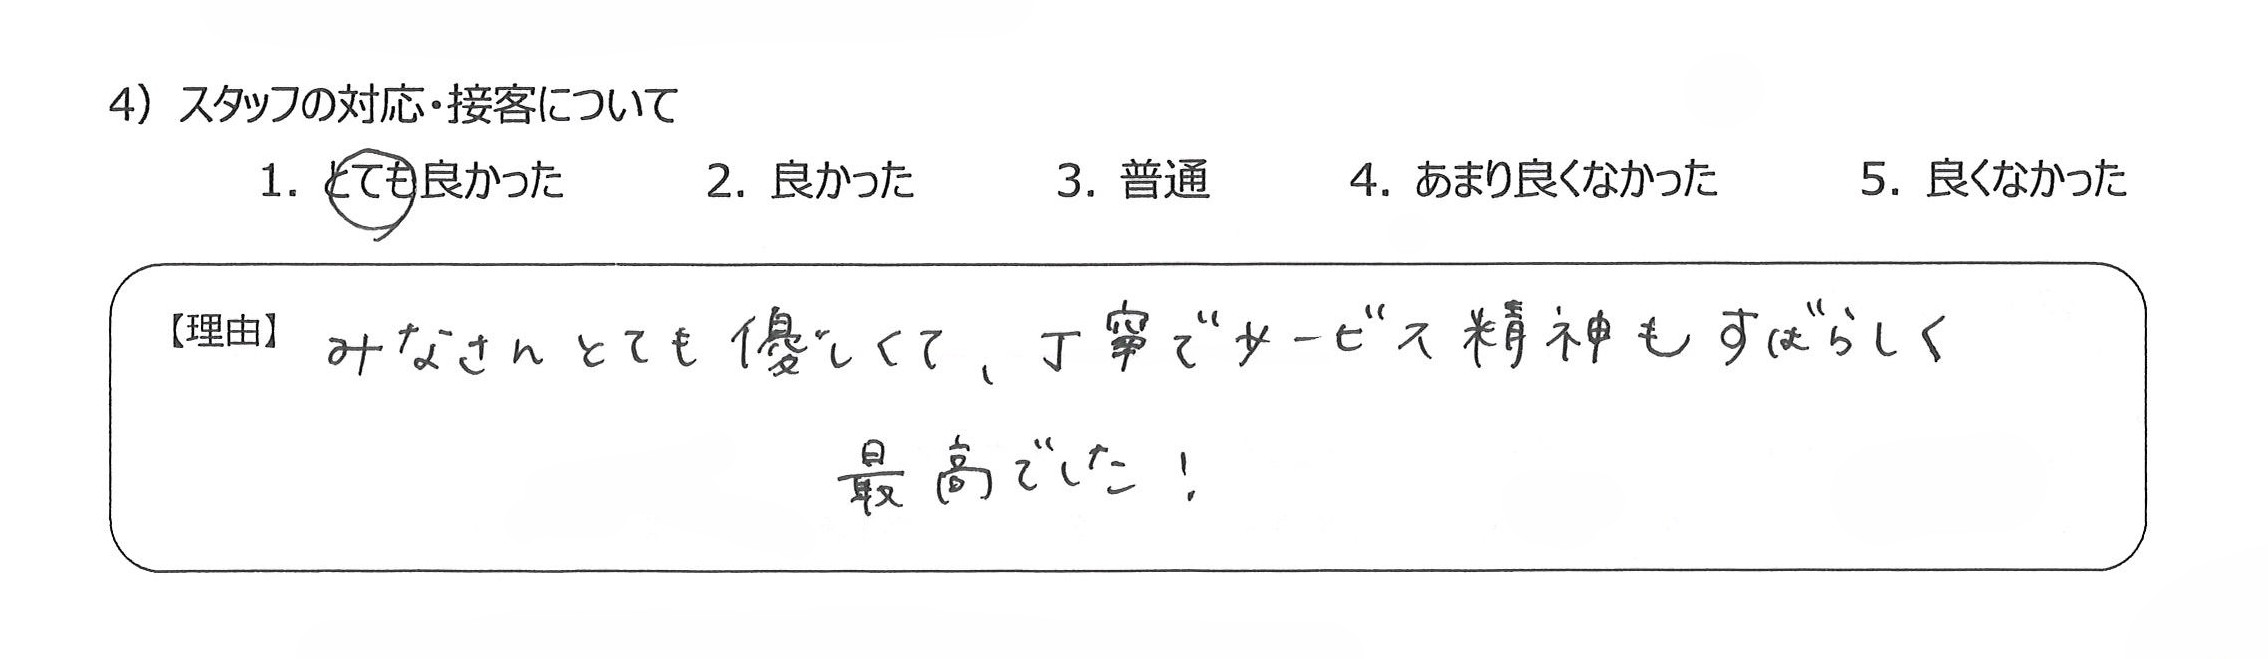 4）スタッフの対応・接客について
1. とても良かった 2. 良かった 3. 普通 4. あまり良くなかった 5. 良くなかった
【理由】みなさんとても優しくて、丁寧でサービス精神もすばらしく
最高でした！